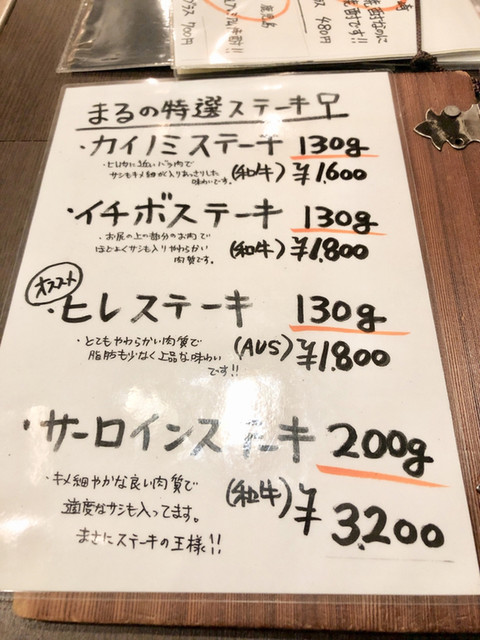 480円
700円
まるの特選ステーキ
・カイノミステーキ 130g
・ヒレ肉に近いバラ肉で
サシもキメ細かく入りあっさりした
味わいです。
(和牛) ¥1,600
・イチボステーキ 130g
・お尻の上の部分のお肉で
ほどよくサシも入りやわらかい
肉質です。
(和牛) ¥1,800
オススメ
・ヒレステーキ 130g
・とてもやわらかい肉質で
脂肪も少なく上品な味わい
です!!
(AUS) ¥1,800
・サーロインステーキ 200g
・キメ細やかな良い肉質で
適度なサシも入ってます。
まさにステーキの王様!!
(和牛) ¥3,200